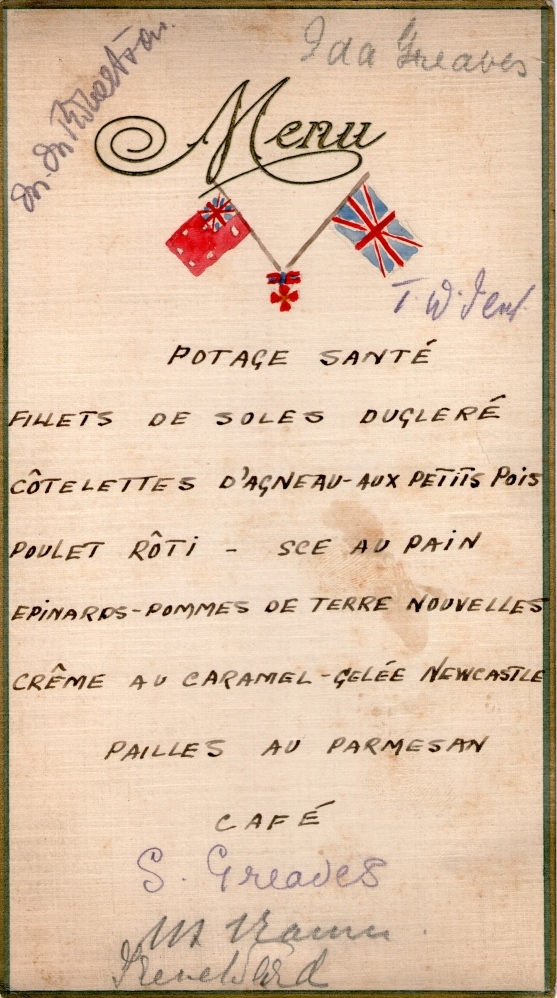 Ida Greaves
M. M. Robertson.
Menu
T. W. Tent
POTAGE SANTÉ
FILLETS DE SOLES DUGLERÉ
CÔTELETTES D'AGNEAU-AUX PETITS POIS
POULET RÔTI - SCE AU PAIN
EPINARDS-POMMES DE TERRE NOUVELLES
CRÊME AU CARAMEL-GELÉE NEWCASTLE
PAILLES AU PARMESAN
CAFÉ
S. Greaves